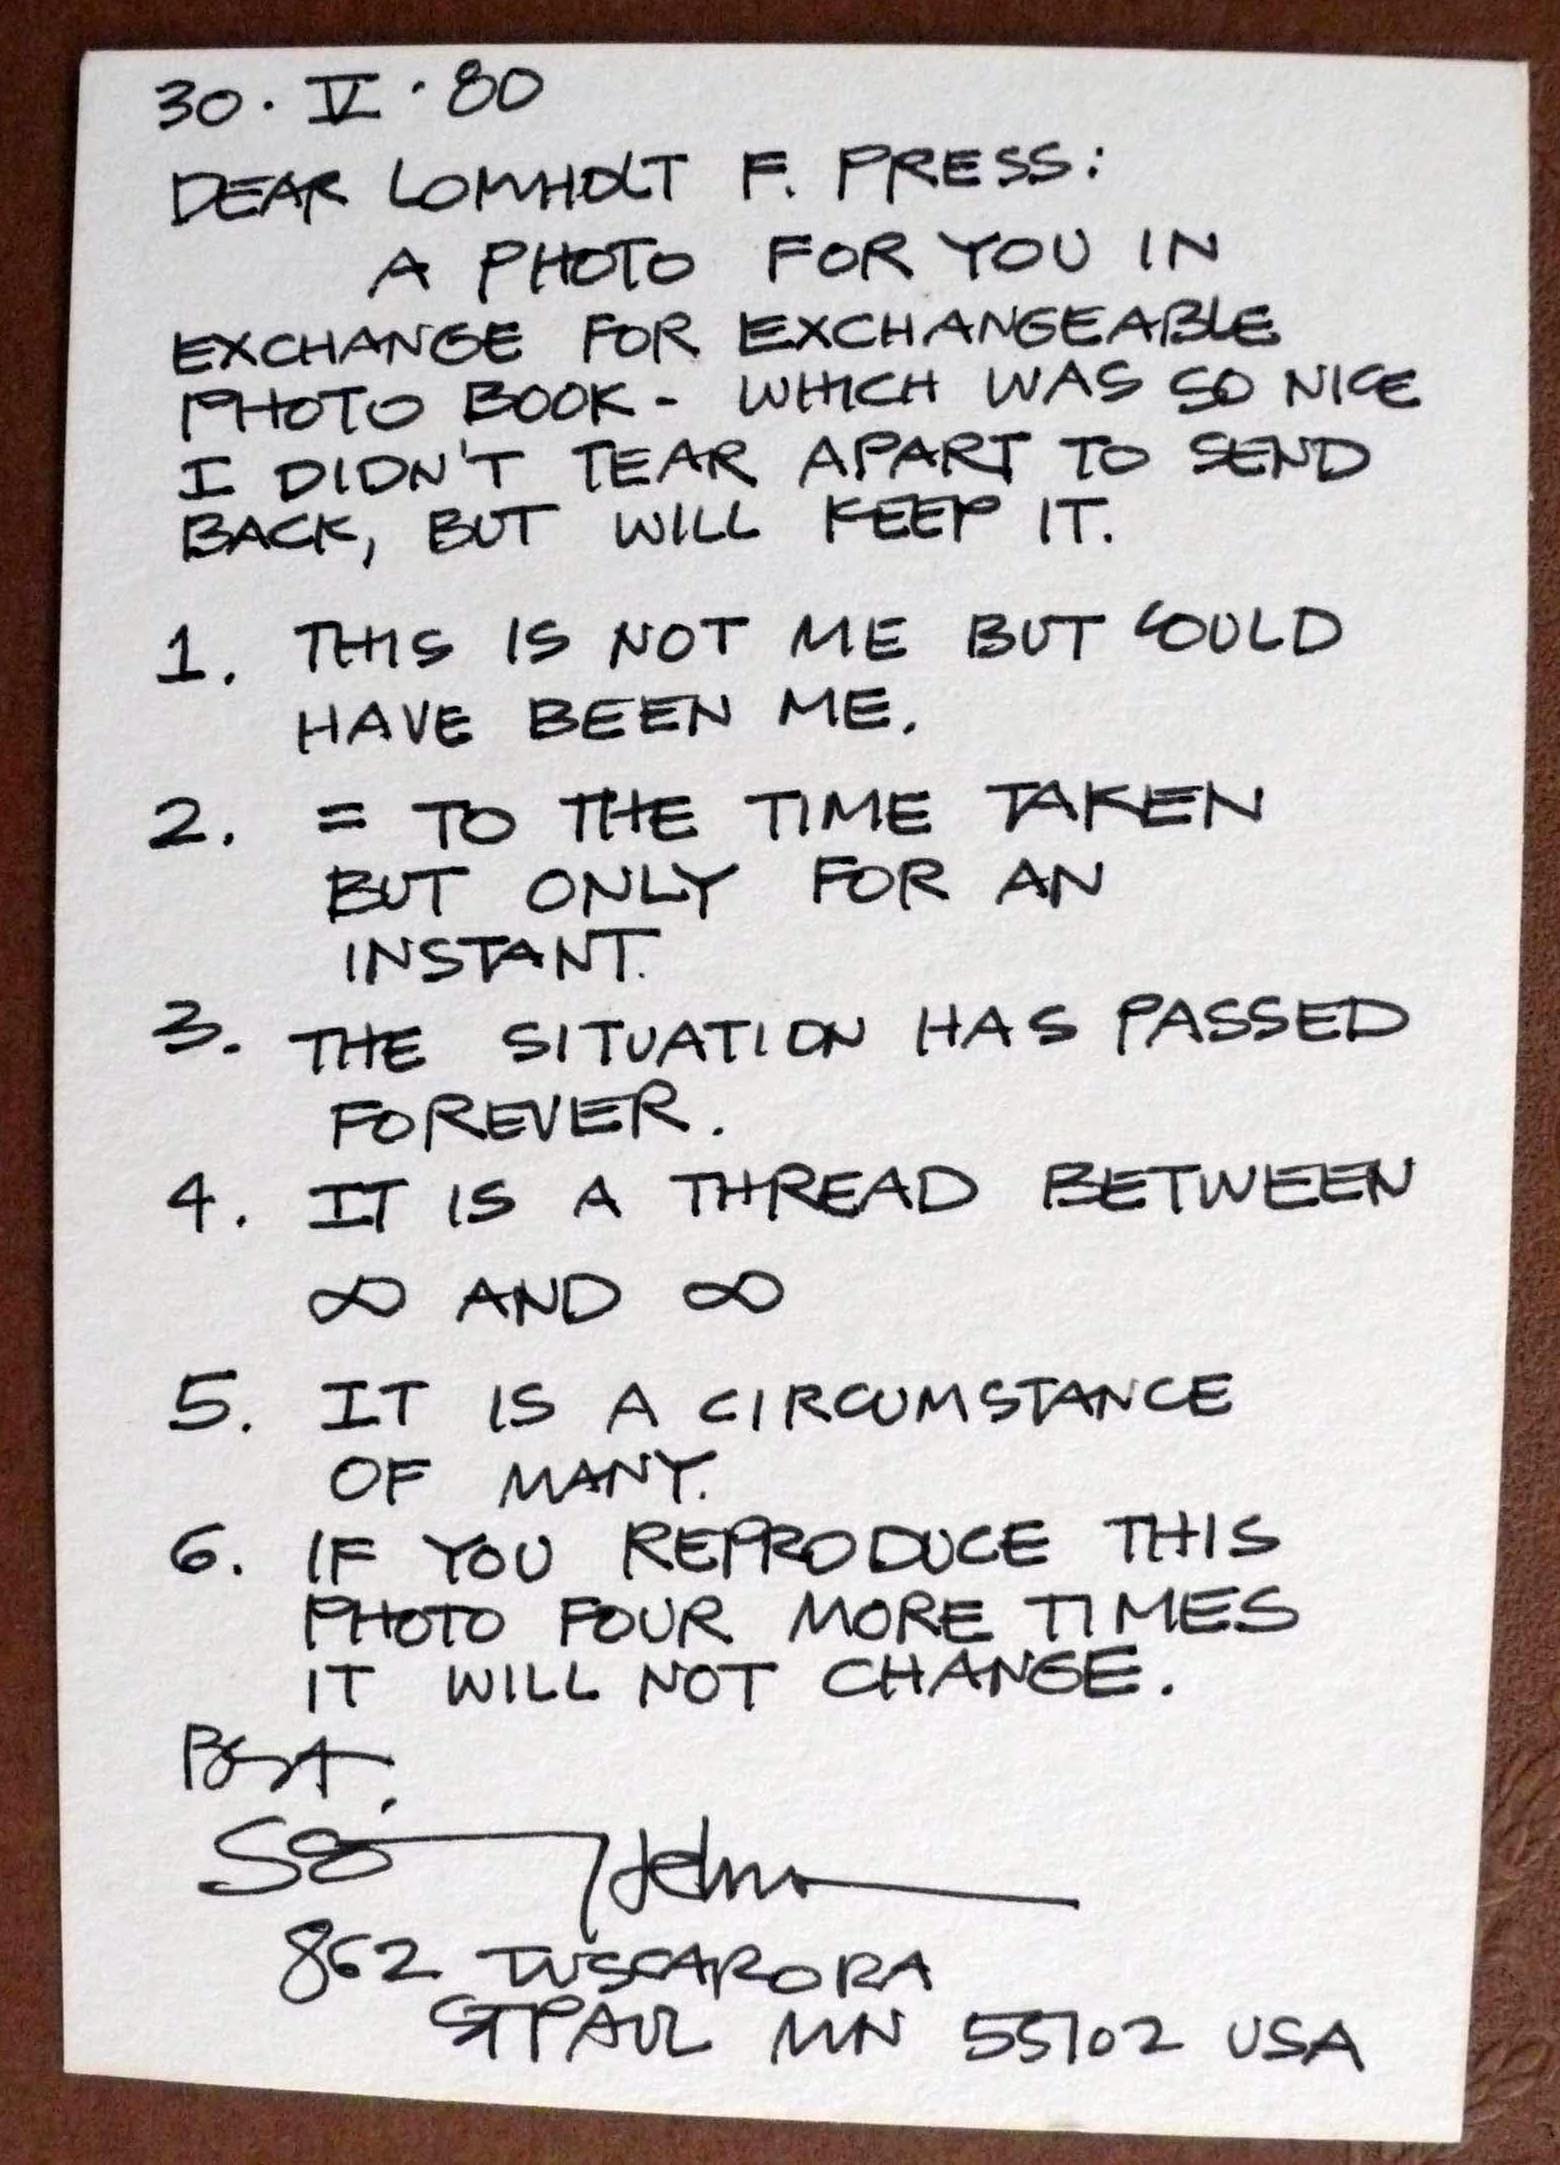 30 · V · 80
DEAR LOMHOLT F. PRESS:
A PHOTO FOR YOU IN
EXCHANGE FOR EXCHANGEABLE
PHOTO BOOK - WHICH WAS SO NICE
I DIDN'T TEAR APART TO SEND
BACK, BUT WILL KEEP IT.
1. THIS IS NOT ME BUT COULD
HAVE BEEN ME.
2. = TO THE TIME TAKEN
BUT ONLY FOR AN
INSTANT.
3. THE SITUATION HAS PASSED
FOREVER.
4. IT IS A THREAD BETWEEN
∞ AND ∞
5. IT IS A CIRCUMSTANCE
OF MANY.
6. IF YOU REPRODUCE THIS
PHOTO FOUR MORE TIMES
IT WILL NOT CHANGE.
Best,
862 TUSCARORA
ST PAUL MN 55102 USA